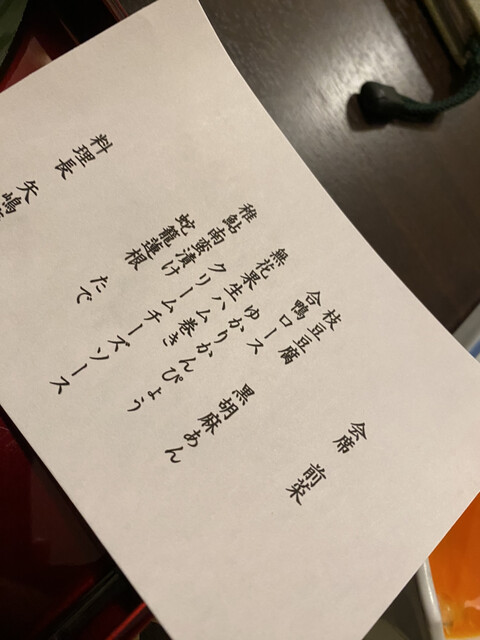 会席 前菜
枝豆豆腐 黒胡麻あん
合鴨ロース
ゆかりかんぴょう
無花果 生ハム巻き
クリームチーズソース
稚鮎南蛮漬け たで
蛇籠蓮根
料理長 矢嶋